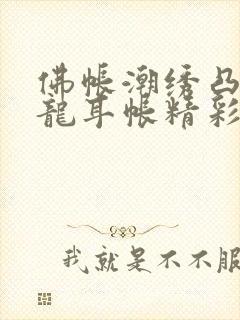 佛帳潮绣凸
龍耳帐精彩
我就是不不服